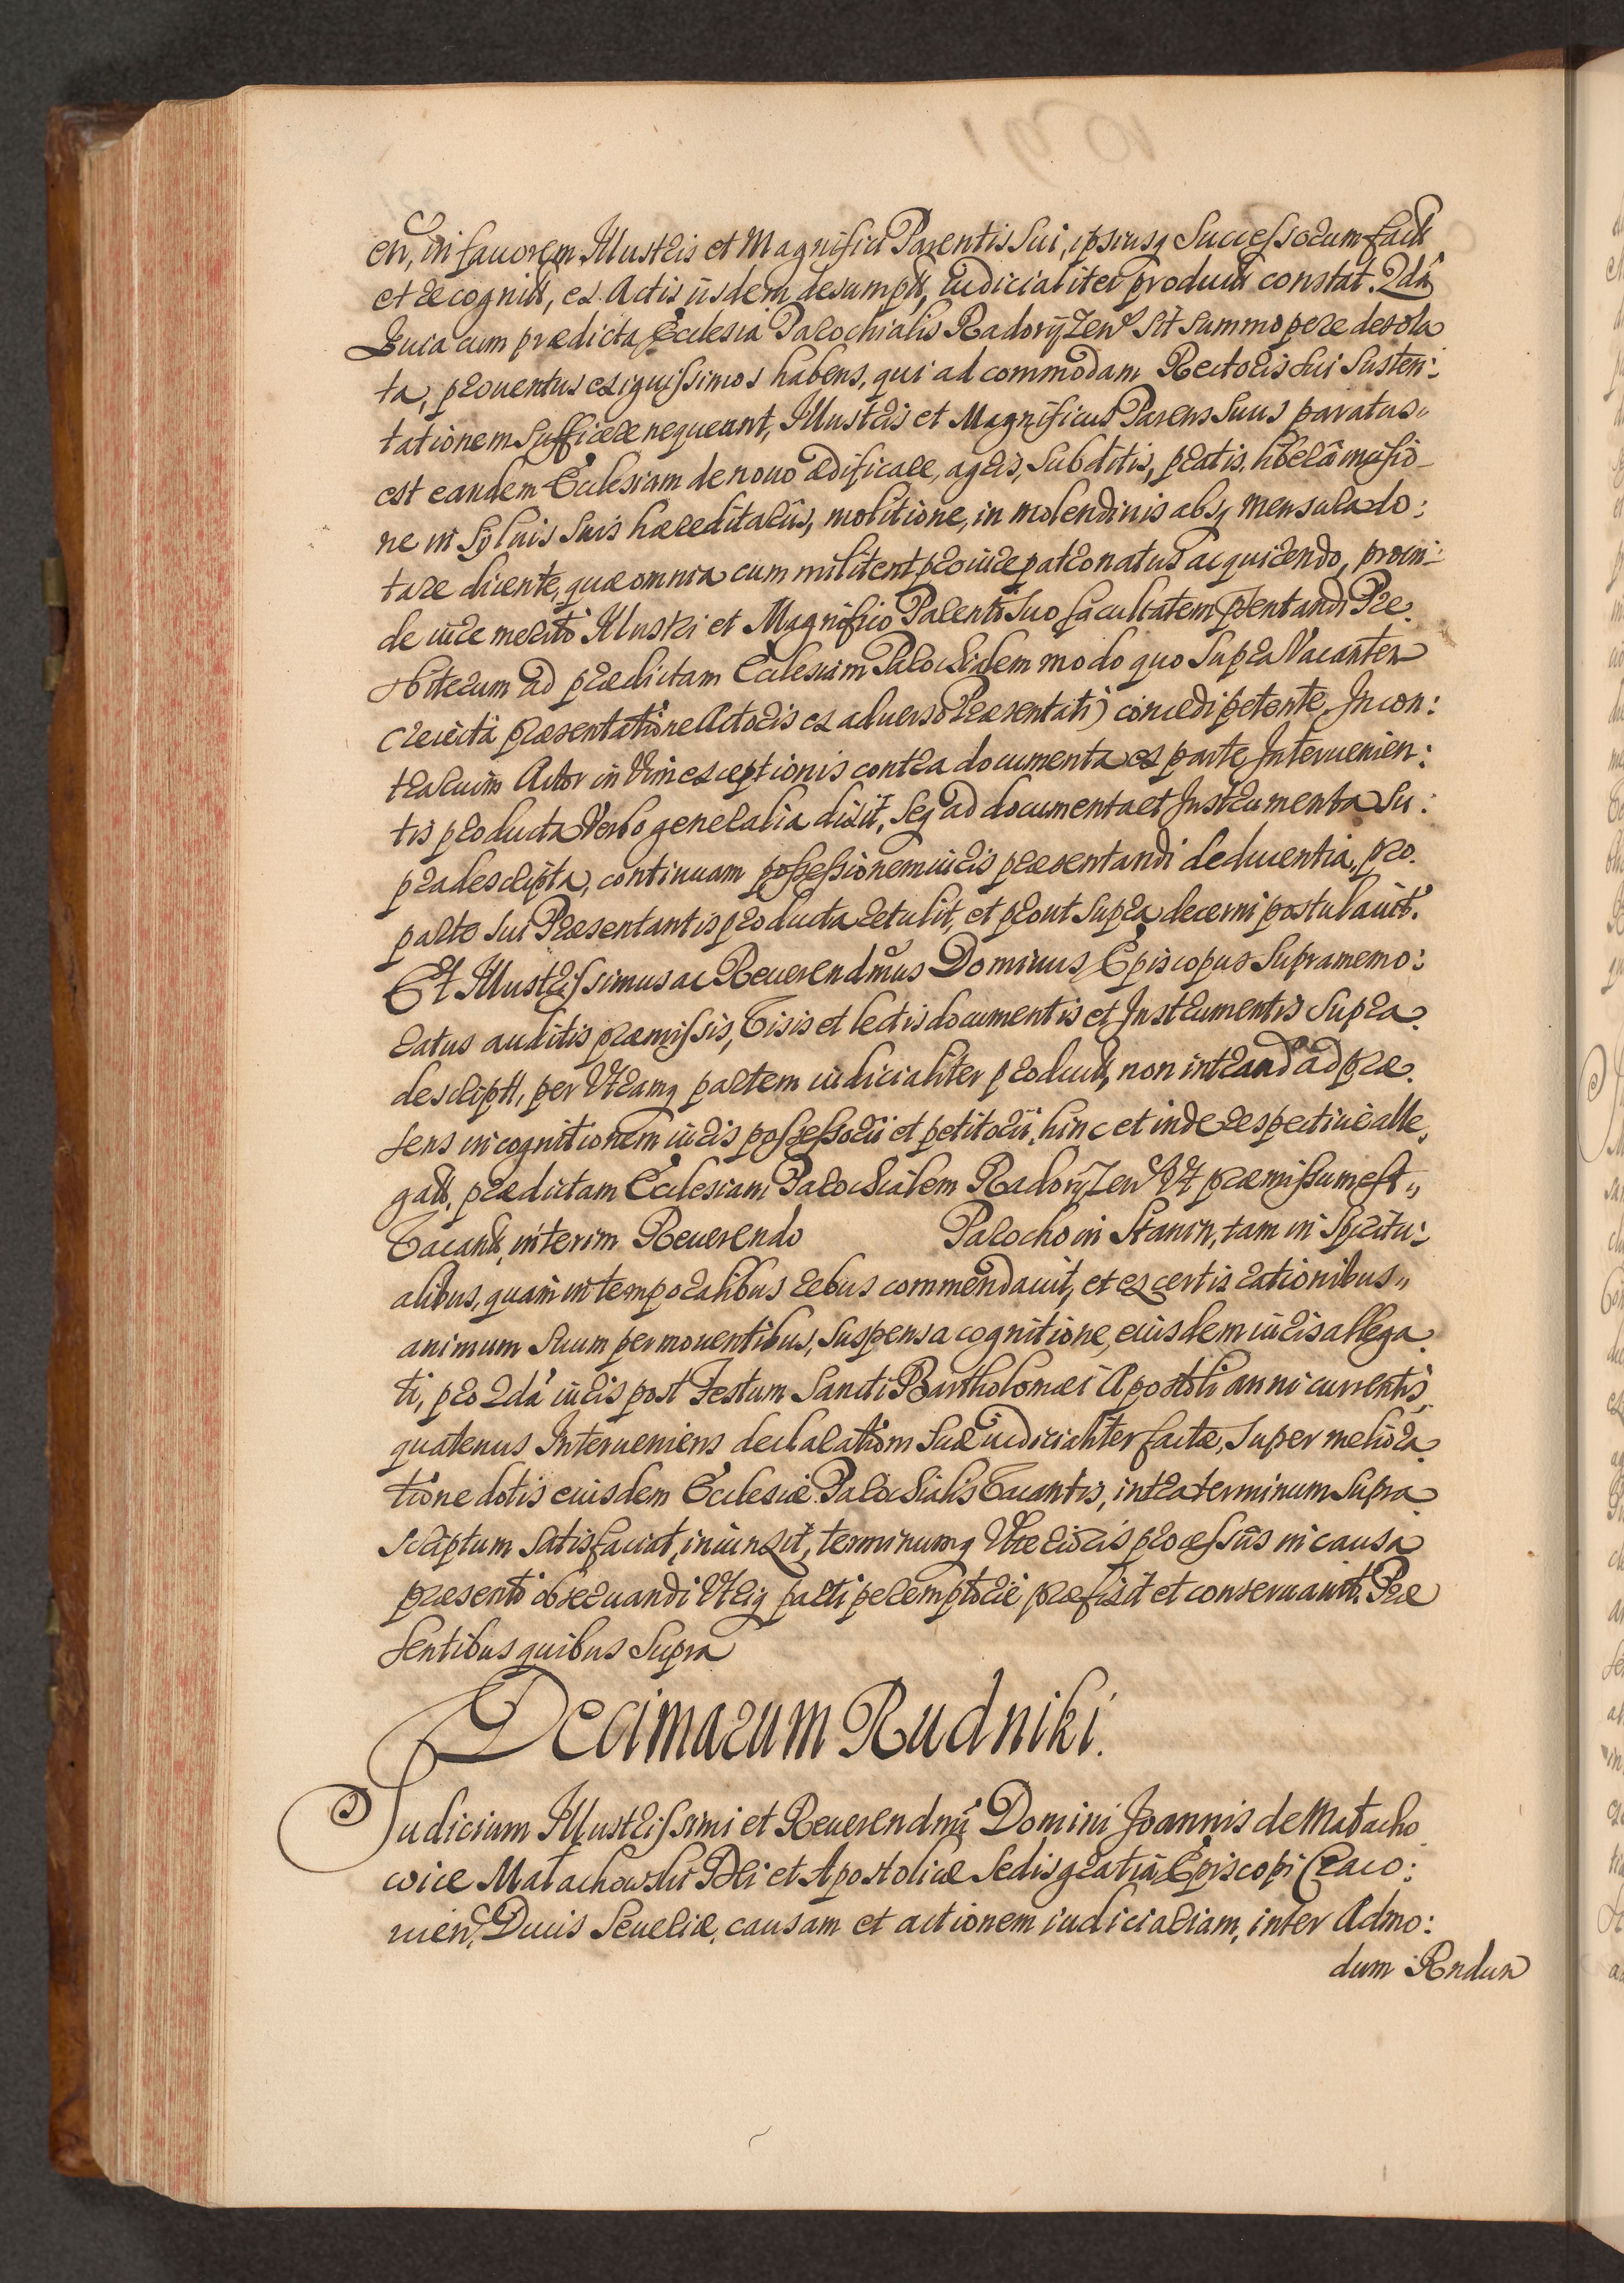 en, in fauorem Illustris et Magnifici Parentis sui, ipsiusq Successorum fact
et recognit, ex Actis iisdem desumpt, iudicialiter product constat. 2da
Iura cum prædicta Ecclesia Parochialis Radoryzew sit summopere desola
ta, prouentus exiguissimos habens, qui ad commodam Rectoris sui susten:
tationem sufficere nequeunt, Illustris et Magnificus Parens suus paratus
est eandem Ecclesiam de nouo ædificare, agris, subditis, pratis, liberâ missio
ne in syluis suis hæreditarijs, molitione, in molendinis absq mensura do:
tare dicente, quæ omnia cum militent pro iure patronatus acquirendo, proin:
de iure meritò Illustri et Magnifico Parenti suo facultatem psentandi Pre
sbiterum ad prædictam Ecclesiam Parochialem modo quo supra Vacantem
(reiectâ præsentatione Actoris ex aduerso Præsentati) concedi petente, In con:
trarium Actor in Vim exceptionis contra documenta ex parte Interuenien:
tis producta Verbo generalia dixit, seq ad documenta et Instrumenta su:
pradescripta, continuam possessionem iuris præsentandi deducentia, pro
parte sui Præsentantis producta retulit, et prout supra decerni postulauit.
Et Illustrissimus ac Reuerendmus Dominus Episcopus supramemo:
ratus auditis præmissis, Visis et lectis documentis et Instrumentis supra
descript, per Vtramq partem iudicialiter product, non intrand ad præ
sens in cognitionem iuris possessorii et petitorii, hinc et inde respectiue alle
gati, prædictam Ecclesiam Parochialem Radoryzew Vt præmissum est
Vacant, interim Reuerendo Parocho in Stanin, tam in Spiritu:
alibus, quam in temporalibus rebus commendauit, et ex certis rationibus
animum suum permouentibus, suspensa cognitione, eiusdem iuris allega
ti, pro 2da iuris post Festum Sancti Bartholomæi Apostoli anni currentis
quatenus Interueniens declarationi suæ iudicialiter factæ, super meliora
tione dotis eiusdem Ecclesiæ Parochialis Vacantis, intra terminum supra
scriptum satisfaciat, iniunxit, terminumq Vlterioris processûs in causa
præsenti obseruandi Vtriq parti peremptorie præfixit et conseruauit. Præ
sentibus quibus supra
Decimarum Rudniki.
Iudicium Illustrissimi et Reuerendmi Domini Joannis de Małacho
wice Małachowski Dei et Apostolicæ Sedis gratia Episcopi Craco:
uien, Ducis Seueriæ, causam et actionem iudiciariam, inter Admo:
dum Rndum